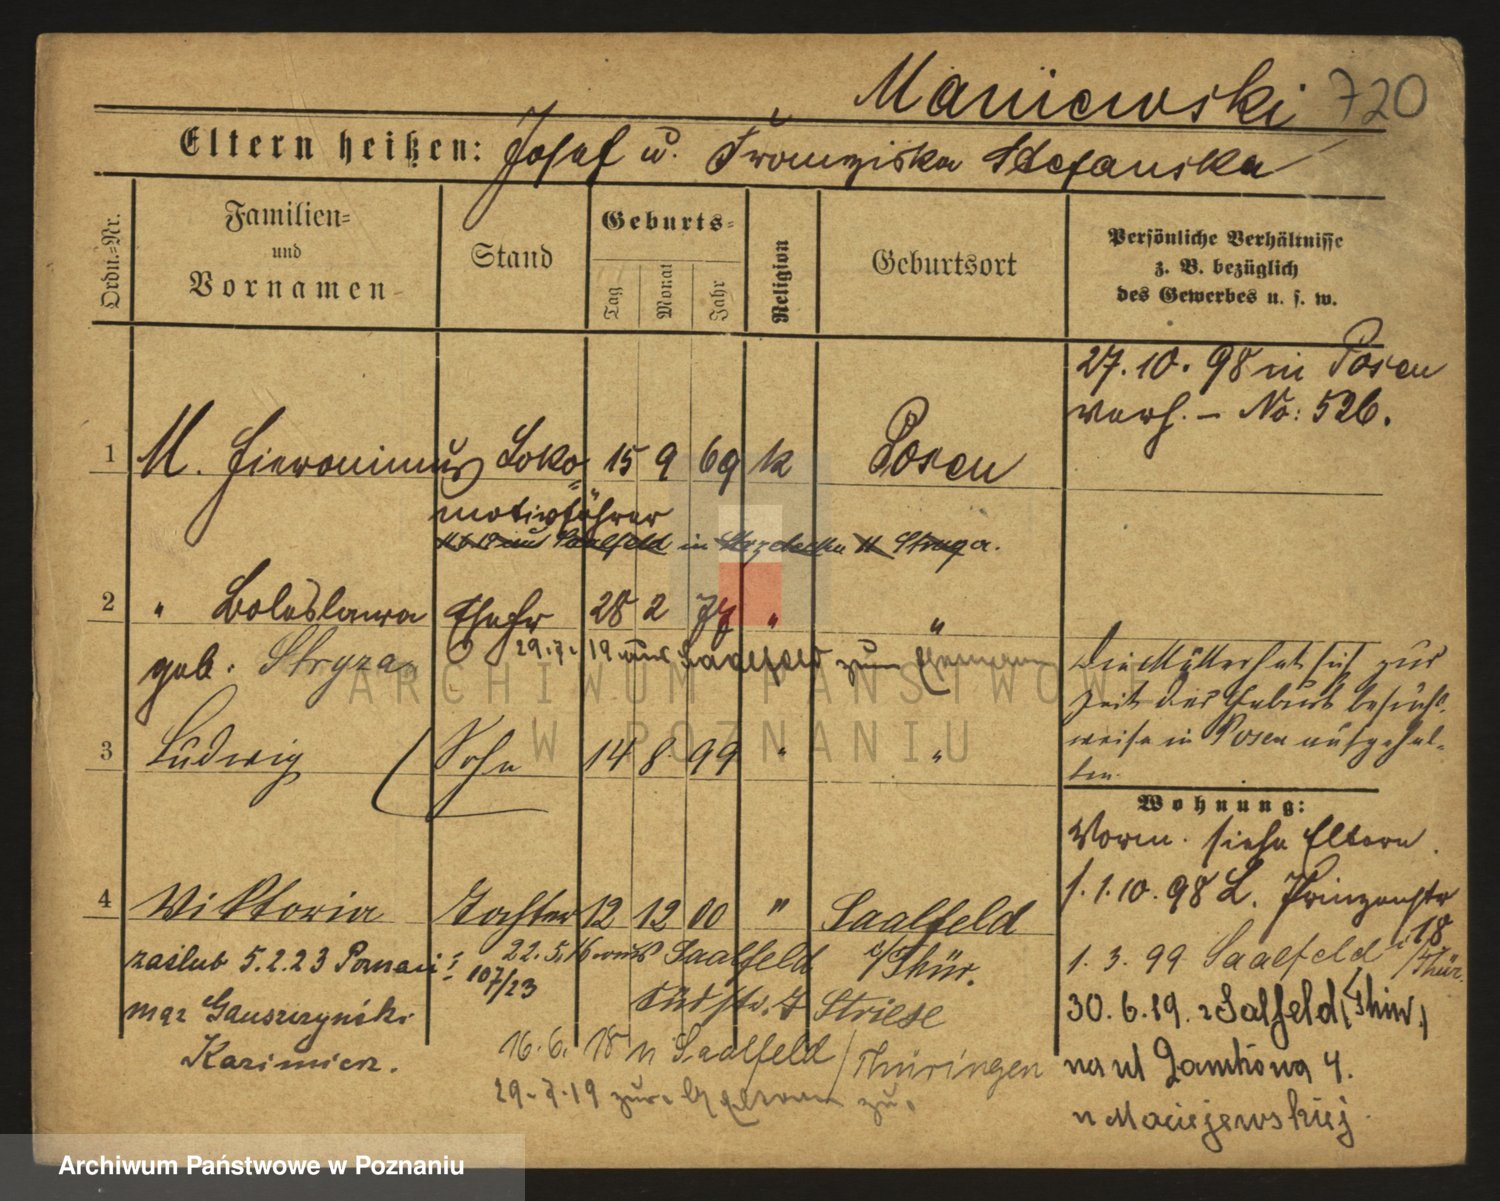 Maniewski 720
Eltern heißen: Josef u. Franziska Stefanska
Ordn.=Nr.
Familien=
und
Vornamen
Stand
Geburts=
Tag
Monat
Jahr
Religion
Geburtsort
Persönliche Verhältnisse
z. B. bezüglich
des Gewerbes u. s. w.
27.10.98 in Posen
verh. – No: 526.
1 M. Hieronimus Loko= 15 9 69 k Posen
motivführer
in Saalfeld in
2 " Boleslawa Ehefr 28 2 74 " "
geb. Stryza 29.7.19 aus Saalfeld zum Ehemann
Die Mutter hat sich zur
Zeit der Geburt besuchs=
weise in Posen aufgehal=
ten.
3 Ludwig Sohn 14 8 99 " "
Wohnung:
Vorm. siehe Eltern.
1.10.98 L. Prinzenstr
18
4 Viktoria Tochter 12 12 00 " Saalfeld
i/Thür.
zaślub 5.2.23 Poznań 107/23
22.5.16 aus Saalfeld
Südstr. 7 Striese
1.3.99 Saalfeld i/Thür.
mąż Gauszczyński
Kazimierz.
16.6.18 n Saalfeld/Thüringen
29.7.19 zur
zu.
30.6.19. z Salfeld (Thür.)
na ul Zamkowa 4.
u Maciejewskiej.
ARCHIWUM PAŃSTWOWE
W POZNANIU
Archiwum Państwowe w Poznaniu